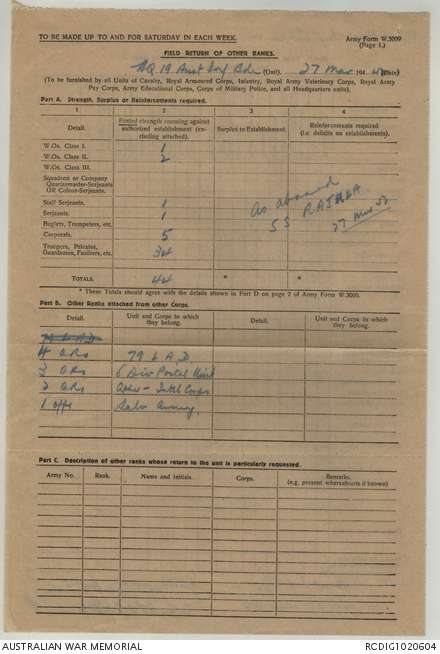 TO BE MADE UP TO AND FOR SATURDAY IN EACH WEEK.
Army Form W.3009
(Page 1.)
FIELD RETURN OF OTHER RANKS.
HQ 19 Aust Inf Bde (Unit). 27 Mar 194 (Date)
(To be furnished by all Units of Cavalry, Royal Armoured Corps, Infantry, Royal Army Veterinary Corps, Royal Army
Pay Corps, Army Educational Corps, Corps of Military Police, and all Headquarters units).
Part A. Strength, Surplus or Reinforcements required.
1 2 3 4
Detail. Posted strength counting against authorized establishment (excluding attached). Surplus to Establishment. Reinforcements required (i.e. deficits on establishments).
W.Os. Class I. 1
W.Os. Class II. 2
W.Os. Class III.
Squadron or Company Quartermaster-Serjeants OR Colour-Serjeants.
Staff Serjeants. 1
Serjeants. 1
Buglers, Trumpeters, etc.
Corporals. 5
Troopers, Privates, Guardsmen, Fusiliers, etc. 34
As aboard
SS RAJULA
27 Mar
TOTALS. 44 * *
* These Totals should agree with the details shown in Part D on page 2 of Army Form W.3009.
Part B. Other Ranks attached from other Corps.
Detail. Unit and Corps to which they belong. Detail. Unit and Corps to which they belong.
4 ORs 79 L A D
3 ORs 6 Div Postal Unit
2 ORs Intell Corps
1 offr Salv Army.
Part C. Description of other ranks whose return to the unit is particularly requested.
Army No. Rank. Name and Initials. Corps. Remarks. (e.g. present whereabouts if known)
AUSTRALIAN WAR MEMORIAL
RCDIG1020604